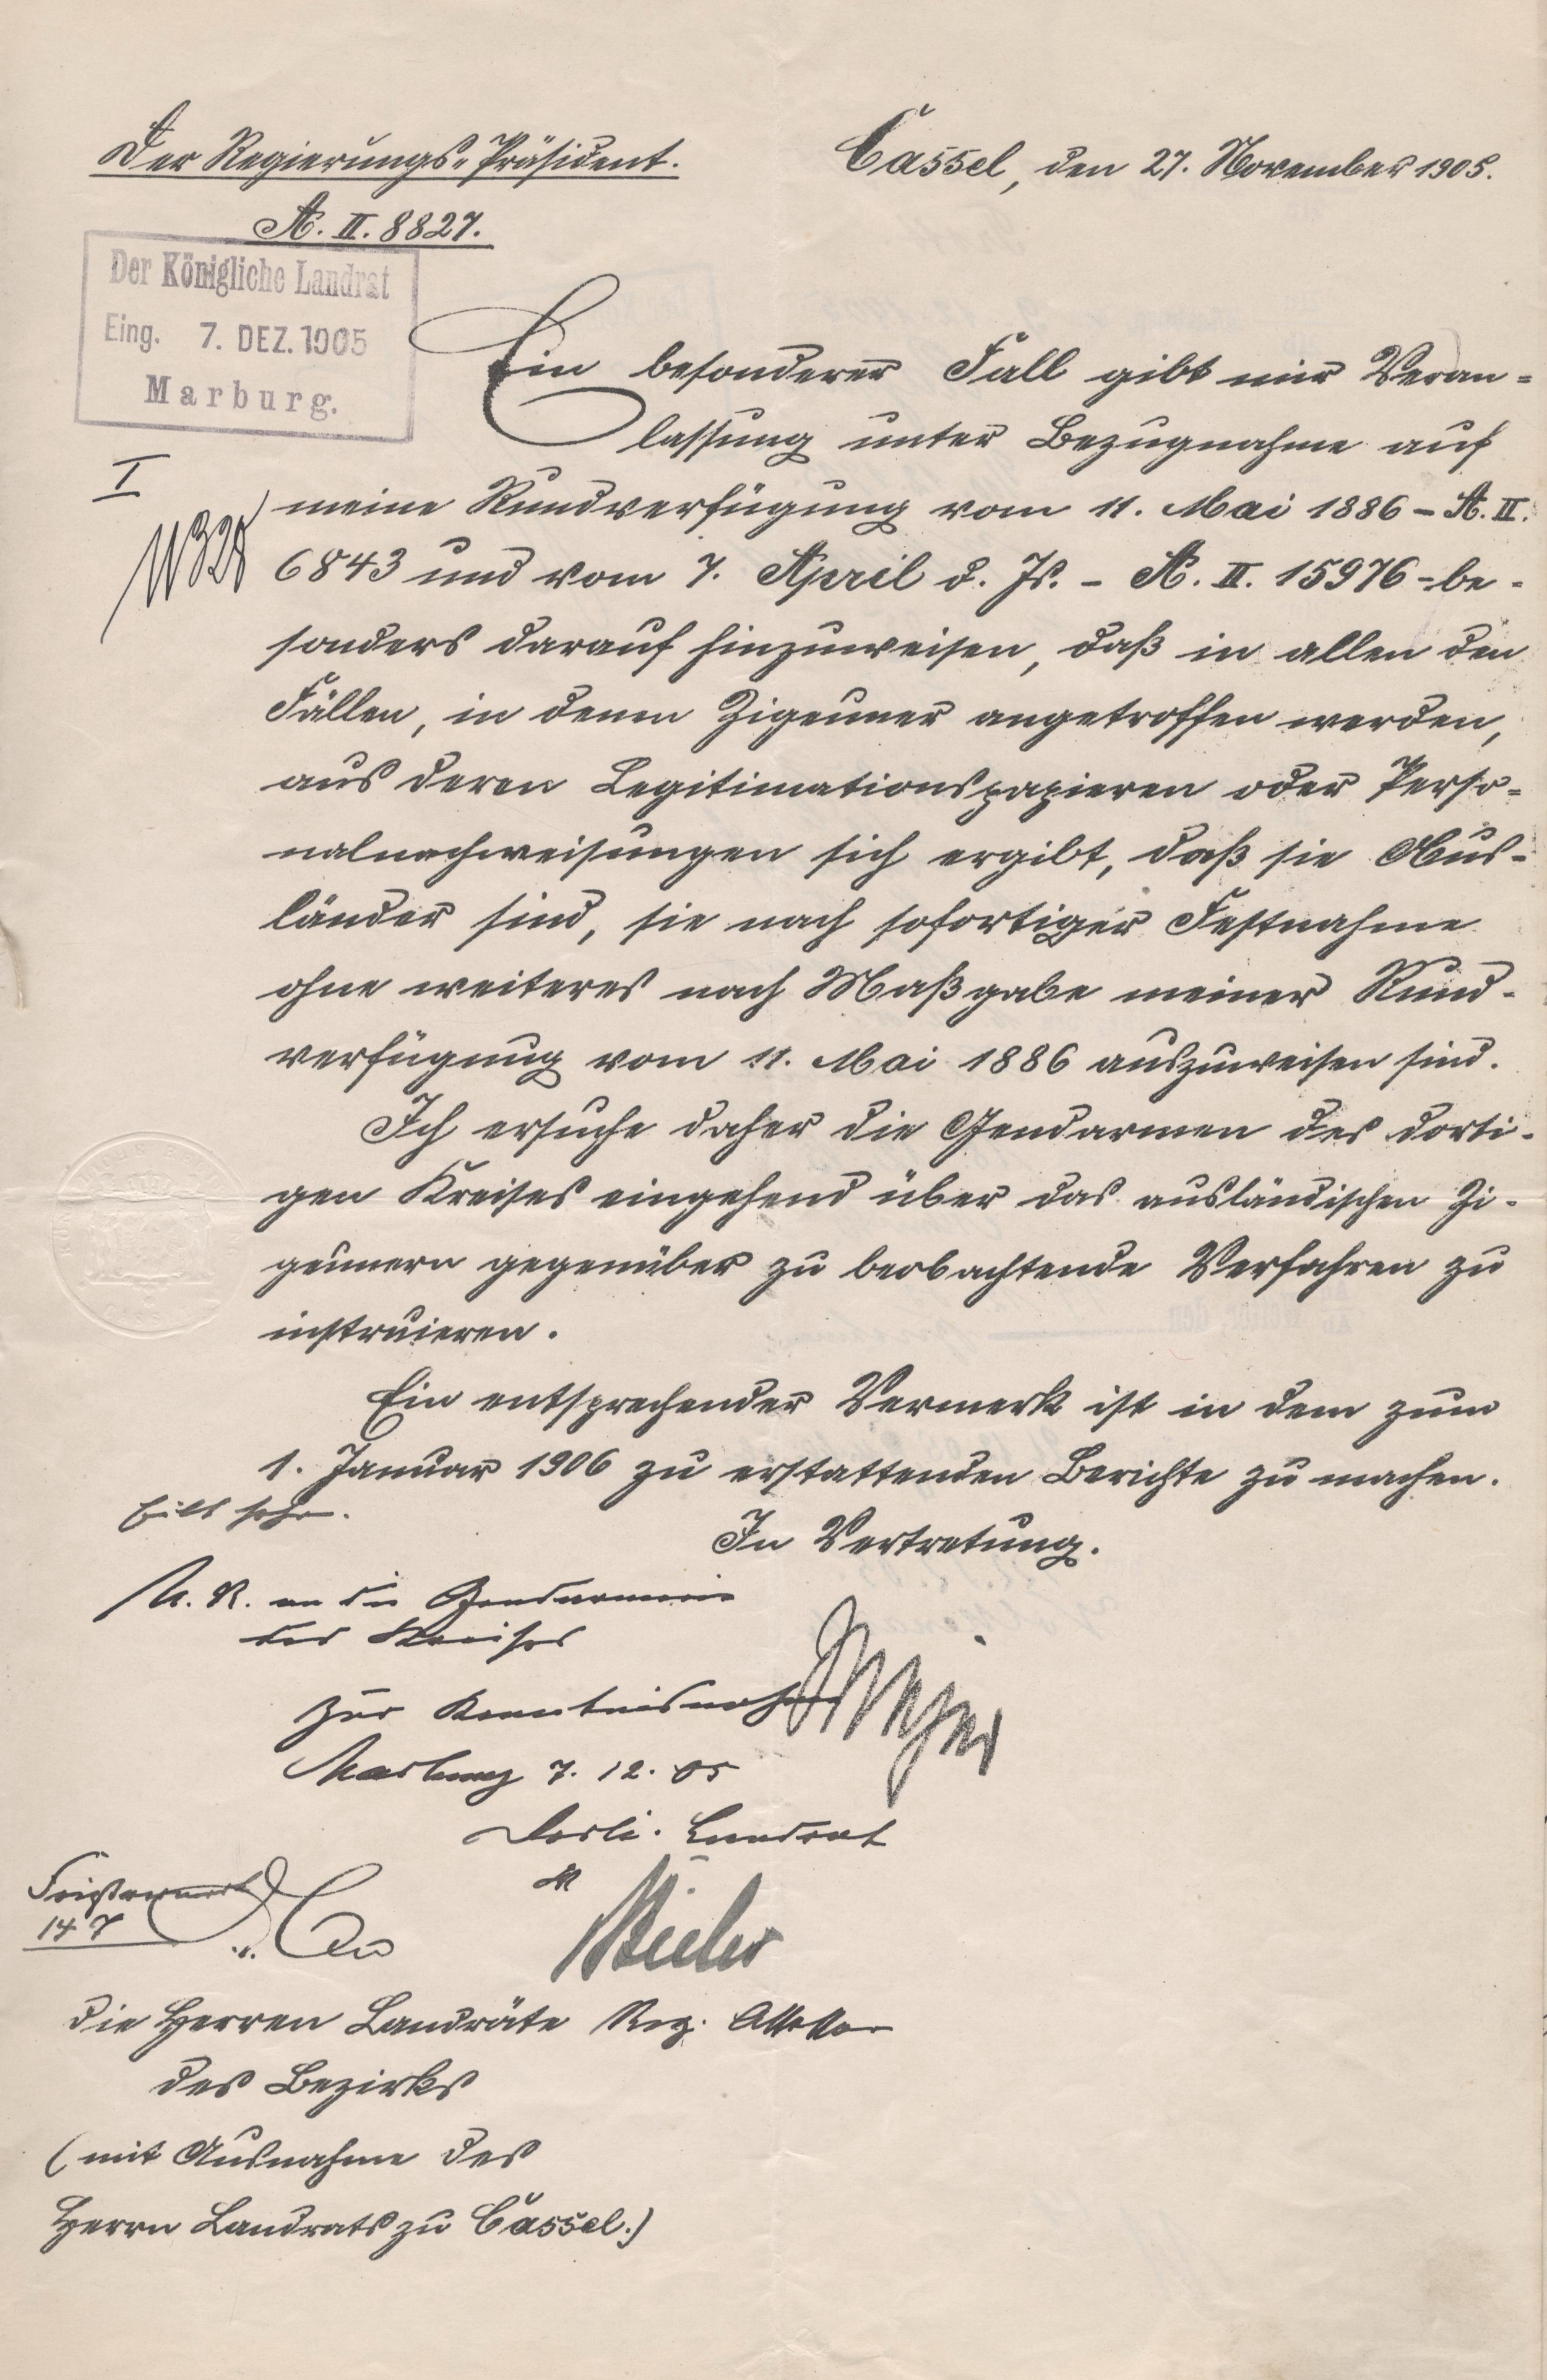 Der Regierungs-Präsident.
Cassel, den 27. November 1905.
A. II. 8827.
Der Königliche Landrat
Eing. 7. DEZ. 1905
Marburg.
Ein besonderer Fall gibt mir Veran-
lassung unter Bezugnahme auf
I
meine Rundverfügung vom 11. Mai 1886 - A. II.
11328
6843 und vom 7. April d. Js. - A. II. 15976 - be-
sonders darauf hinzuweisen, daß in allen den
Fällen, in denen Zigeuner angetroffen werden,
aus deren Legitimationspapieren oder Perso-
nalnachweisungen sich ergibt, daß sie Aus-
länder sind, sie nach sofortiger Festnahme
ohne weiteres nach Maßgabe meiner Rund-
verfügung vom 11. Mai 1886 auszuweisen sind.
Ich ersuche daher die Gendarmen des dorti-
gen Kreises eingehend über das ausländischen Zi-
geunern gegenüber zu beobachtende Verfahren zu
instruieren.
Ein entsprechender Vermerk ist in dem zum
1. Januar 1906 zu erstattenden Berichte zu machen.
Eilt sehr.
In Vertretung.
U. R. an die Gendarmerie
des Kreises
zur Kenntnisnahme
Marburg 7. 12. 05
Landrat
An
die Herren Landräte
Reg. Assessor
des Bezirks
(mit Ausnahme des
Herrn Landrats zu Cassel.)